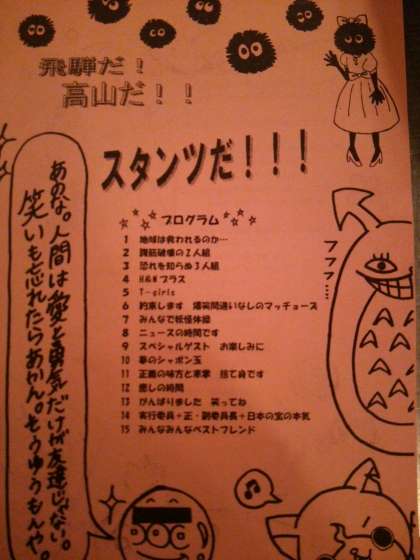 飛騨だ！
高山だ！！
スタンツだ！！！
プログラム
1 地球は救われるのか…
2 腹筋破壊の2人組
3 恐れを知らぬ3人組
4 H&Nプラス
5 T-girls
6 約束します 爆笑間違いなしのマッチョーズ
7 みんなで妖怪体操
8 ニュースの時間です
9 スペシャルゲスト お楽しみに
10 夢のシャボン玉
11 正義の味方と悪家 捨て身です
12 癒しの時間
13 がんばりました 笑ってね
14 実行委員＋正・副委員長＋日本の宝の本気
15 みんなみんなベストフレンド
フフフ....
あのな。人間は愛と勇気だけが友達じゃない。
笑いも忘れたらあかん。そうゆうもんや。